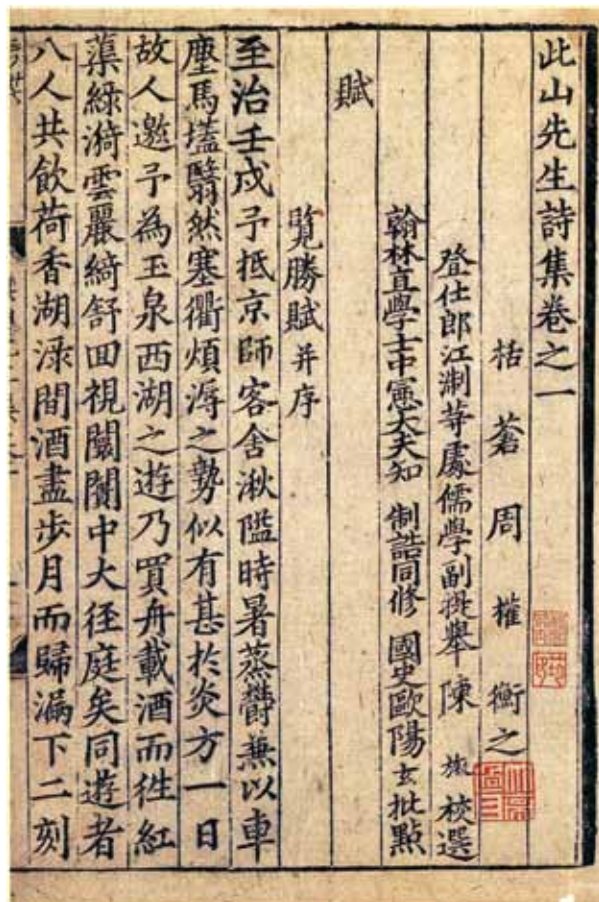 此山先生詩集卷之一
栝蒼周權衡之
登仕郎江淛等處儒學副提舉陳旅校選
翰林直學士中憲大夫知制誥同修國史歐陽玄批點
賦
覽勝賦并序
至治壬戌予抵京師客舍湫隘時暑蒸欝兼以車
塵馬𡏖翳然塞衢煩溽之勢似有甚於炎方一日
故人邀予為玉泉西湖之遊乃買舟載酒而徃紅
蕖綠漪雲麗綺舒囬視闤闠中大徑庭矣同遊者
八人共飲荷香湖渌間酒盡步月而歸漏下二刻